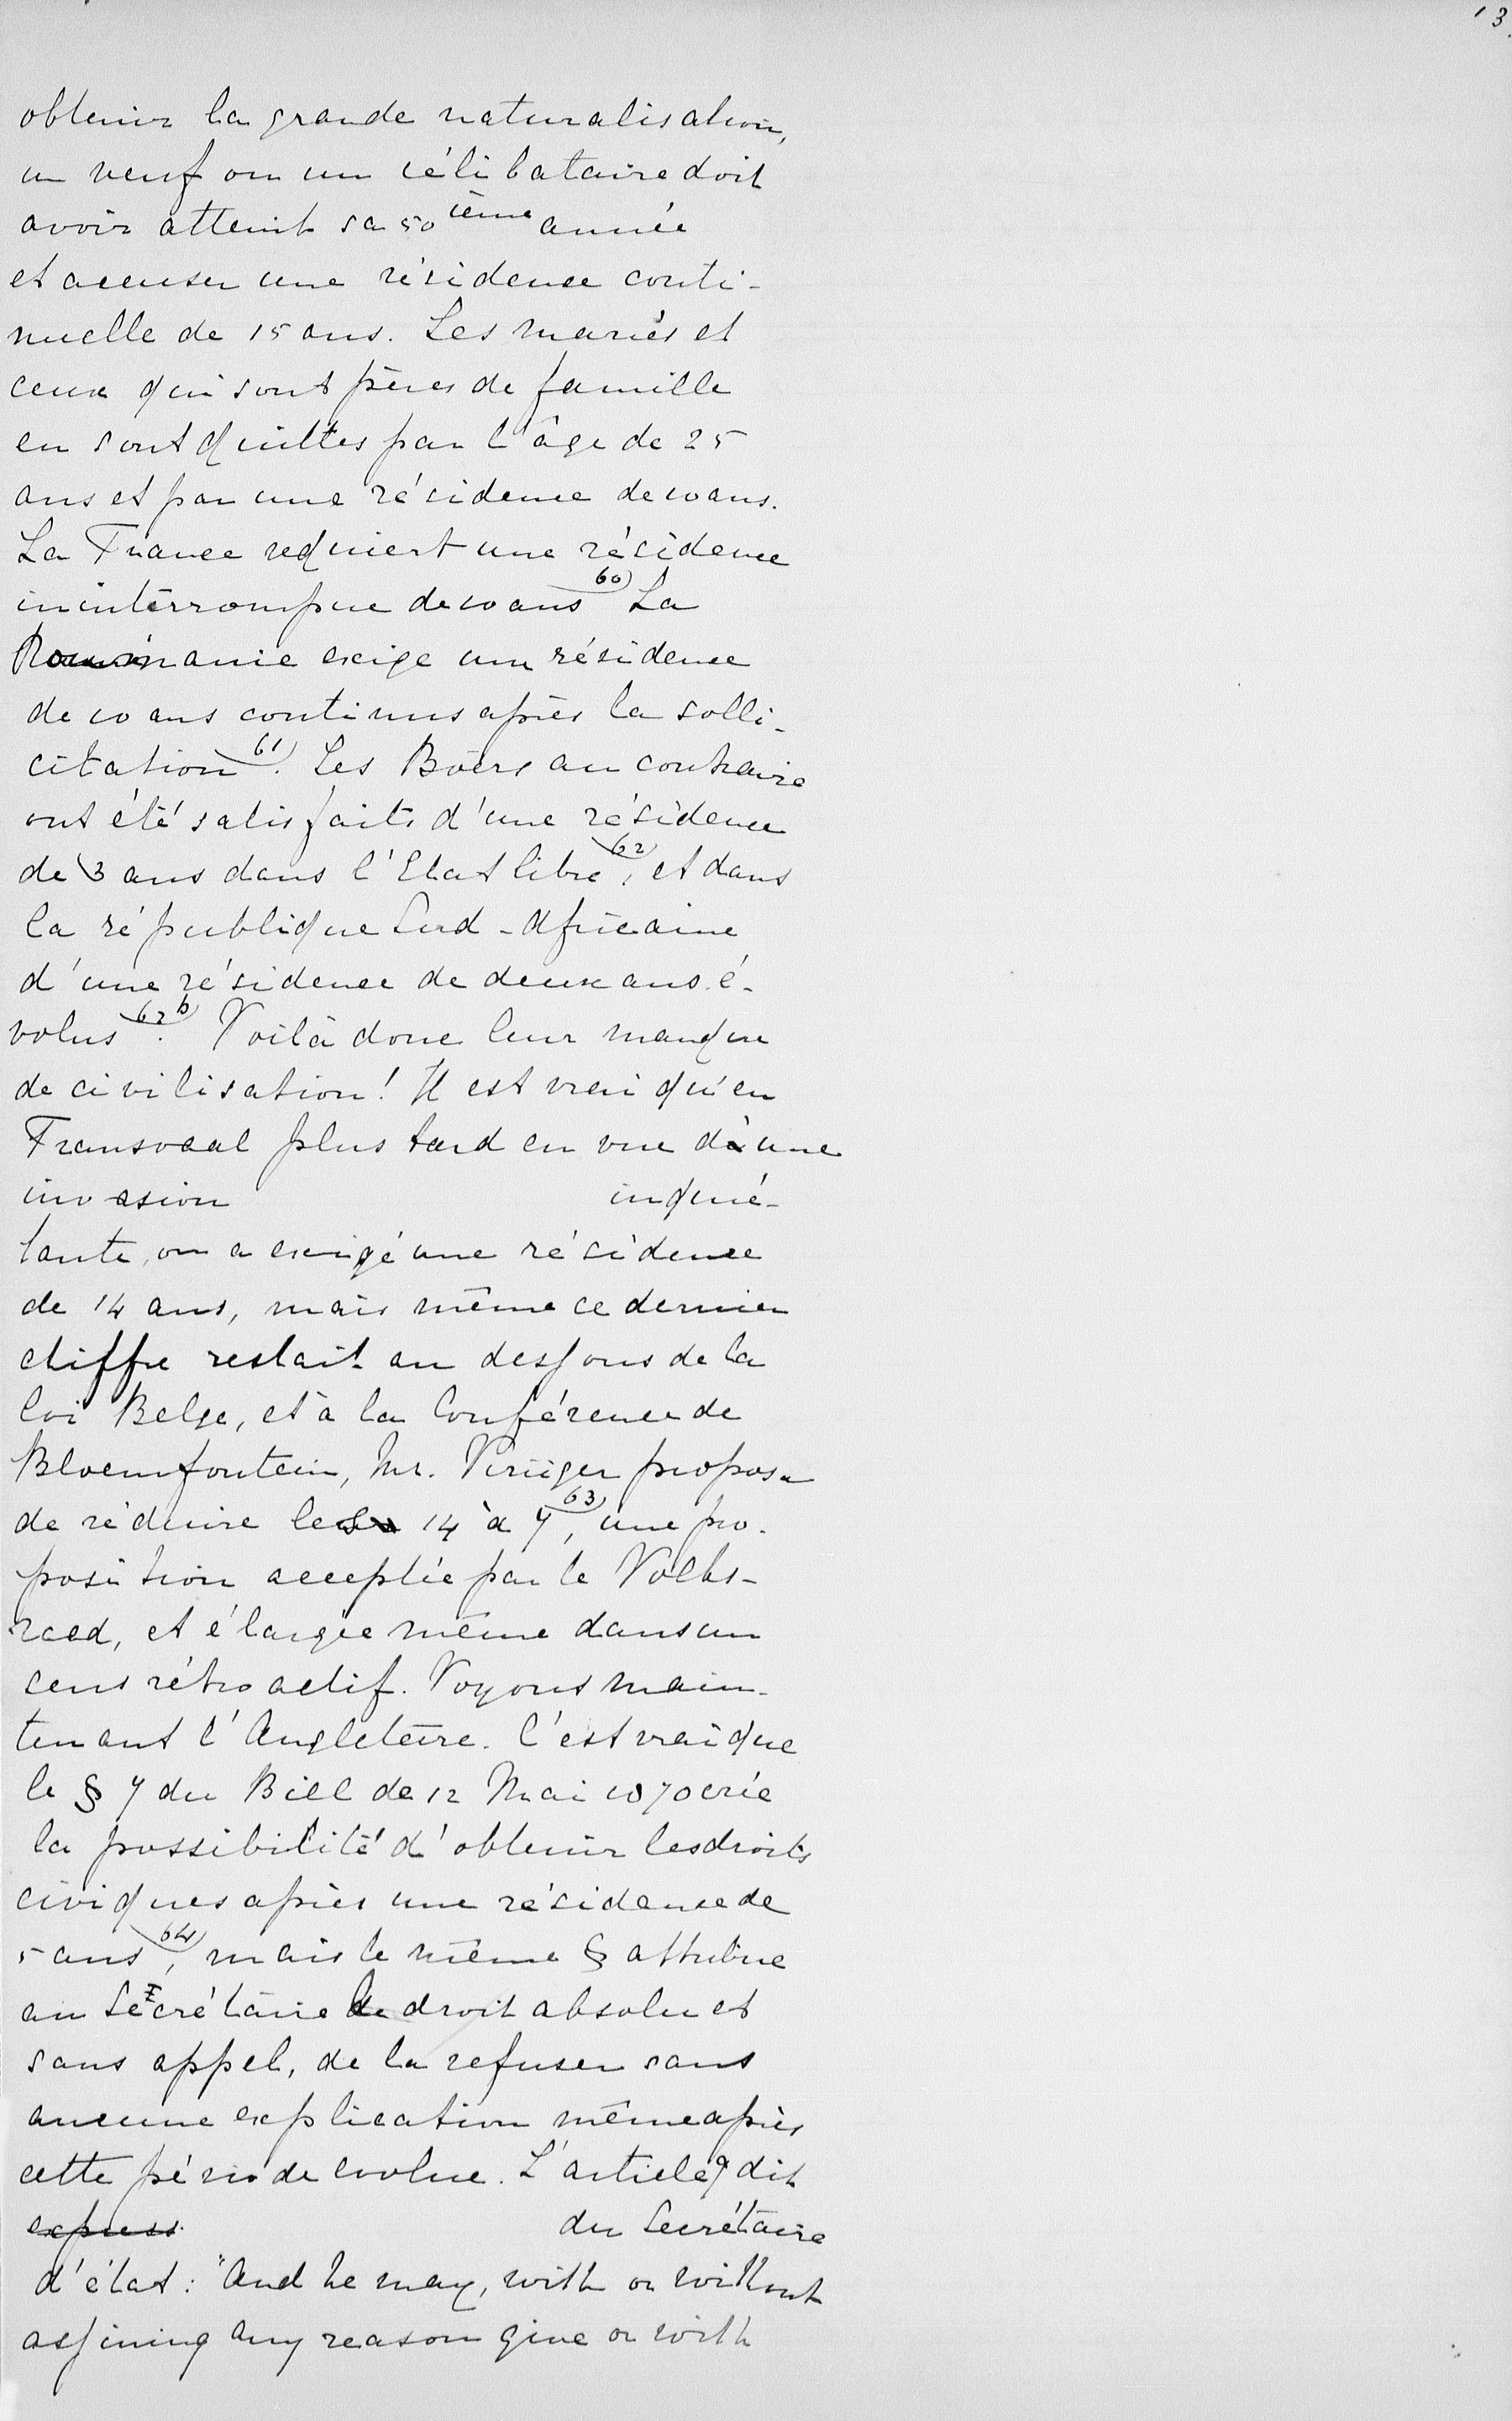 13.
obtenir la grande naturalisation,
un veuf ou un célibataire doit
avoir atteint sa 50ième année
et accuser une résidence conti-
nuelle de 15 ans. Les mariés et
ceux qui sont pères de famille
en sont quittes par l'âge de 25
ans et par une résidence de 10 ans.
La France requiert une résidence
inintérrompue de 10 ans 60) La
Roumanie exige une résidence
de 10 ans continus après la solli-
citation 61). Les Boërs au contraire
ont été satisfaits d'une résidence
de 3 ans dans l'Etat libre 62), et dans
la république Sud-Africaine
d'une résidence de deux ans é-
volus 62b). Voilà donc leur manque
de civilisation! Il est vrai qu'en
Transvaal plus tard en vue d'une
invasion inquié-
tante, on a exigé une résidence
de 14 ans, mais même ce dernier
chiffre restait au dessous de la
loi Belge, et à la Conférence de
Bloemfontein, Mr. Krüger proposa
de réduire les 14 à 7 63), une pro-
position acceptée par le Volks-
raad, et élargie même dans un
sens rétroactif. Voyons main-
tenant l'Angleterre. C'est vrai que
le § 7 du Bill de 12 Mai 1870 crée
la possibilité d'obtenir les droits
civiques après une résidence de
5 ans 64), mais le même § attribue
au Secrétaire le droit absolu et
sans appel, de la refuser sans
aucune explication même après
cette période évolue. L'article 7 dit
express du Secrétaire
d'état: "And he may, with or without
assining any reason give or with